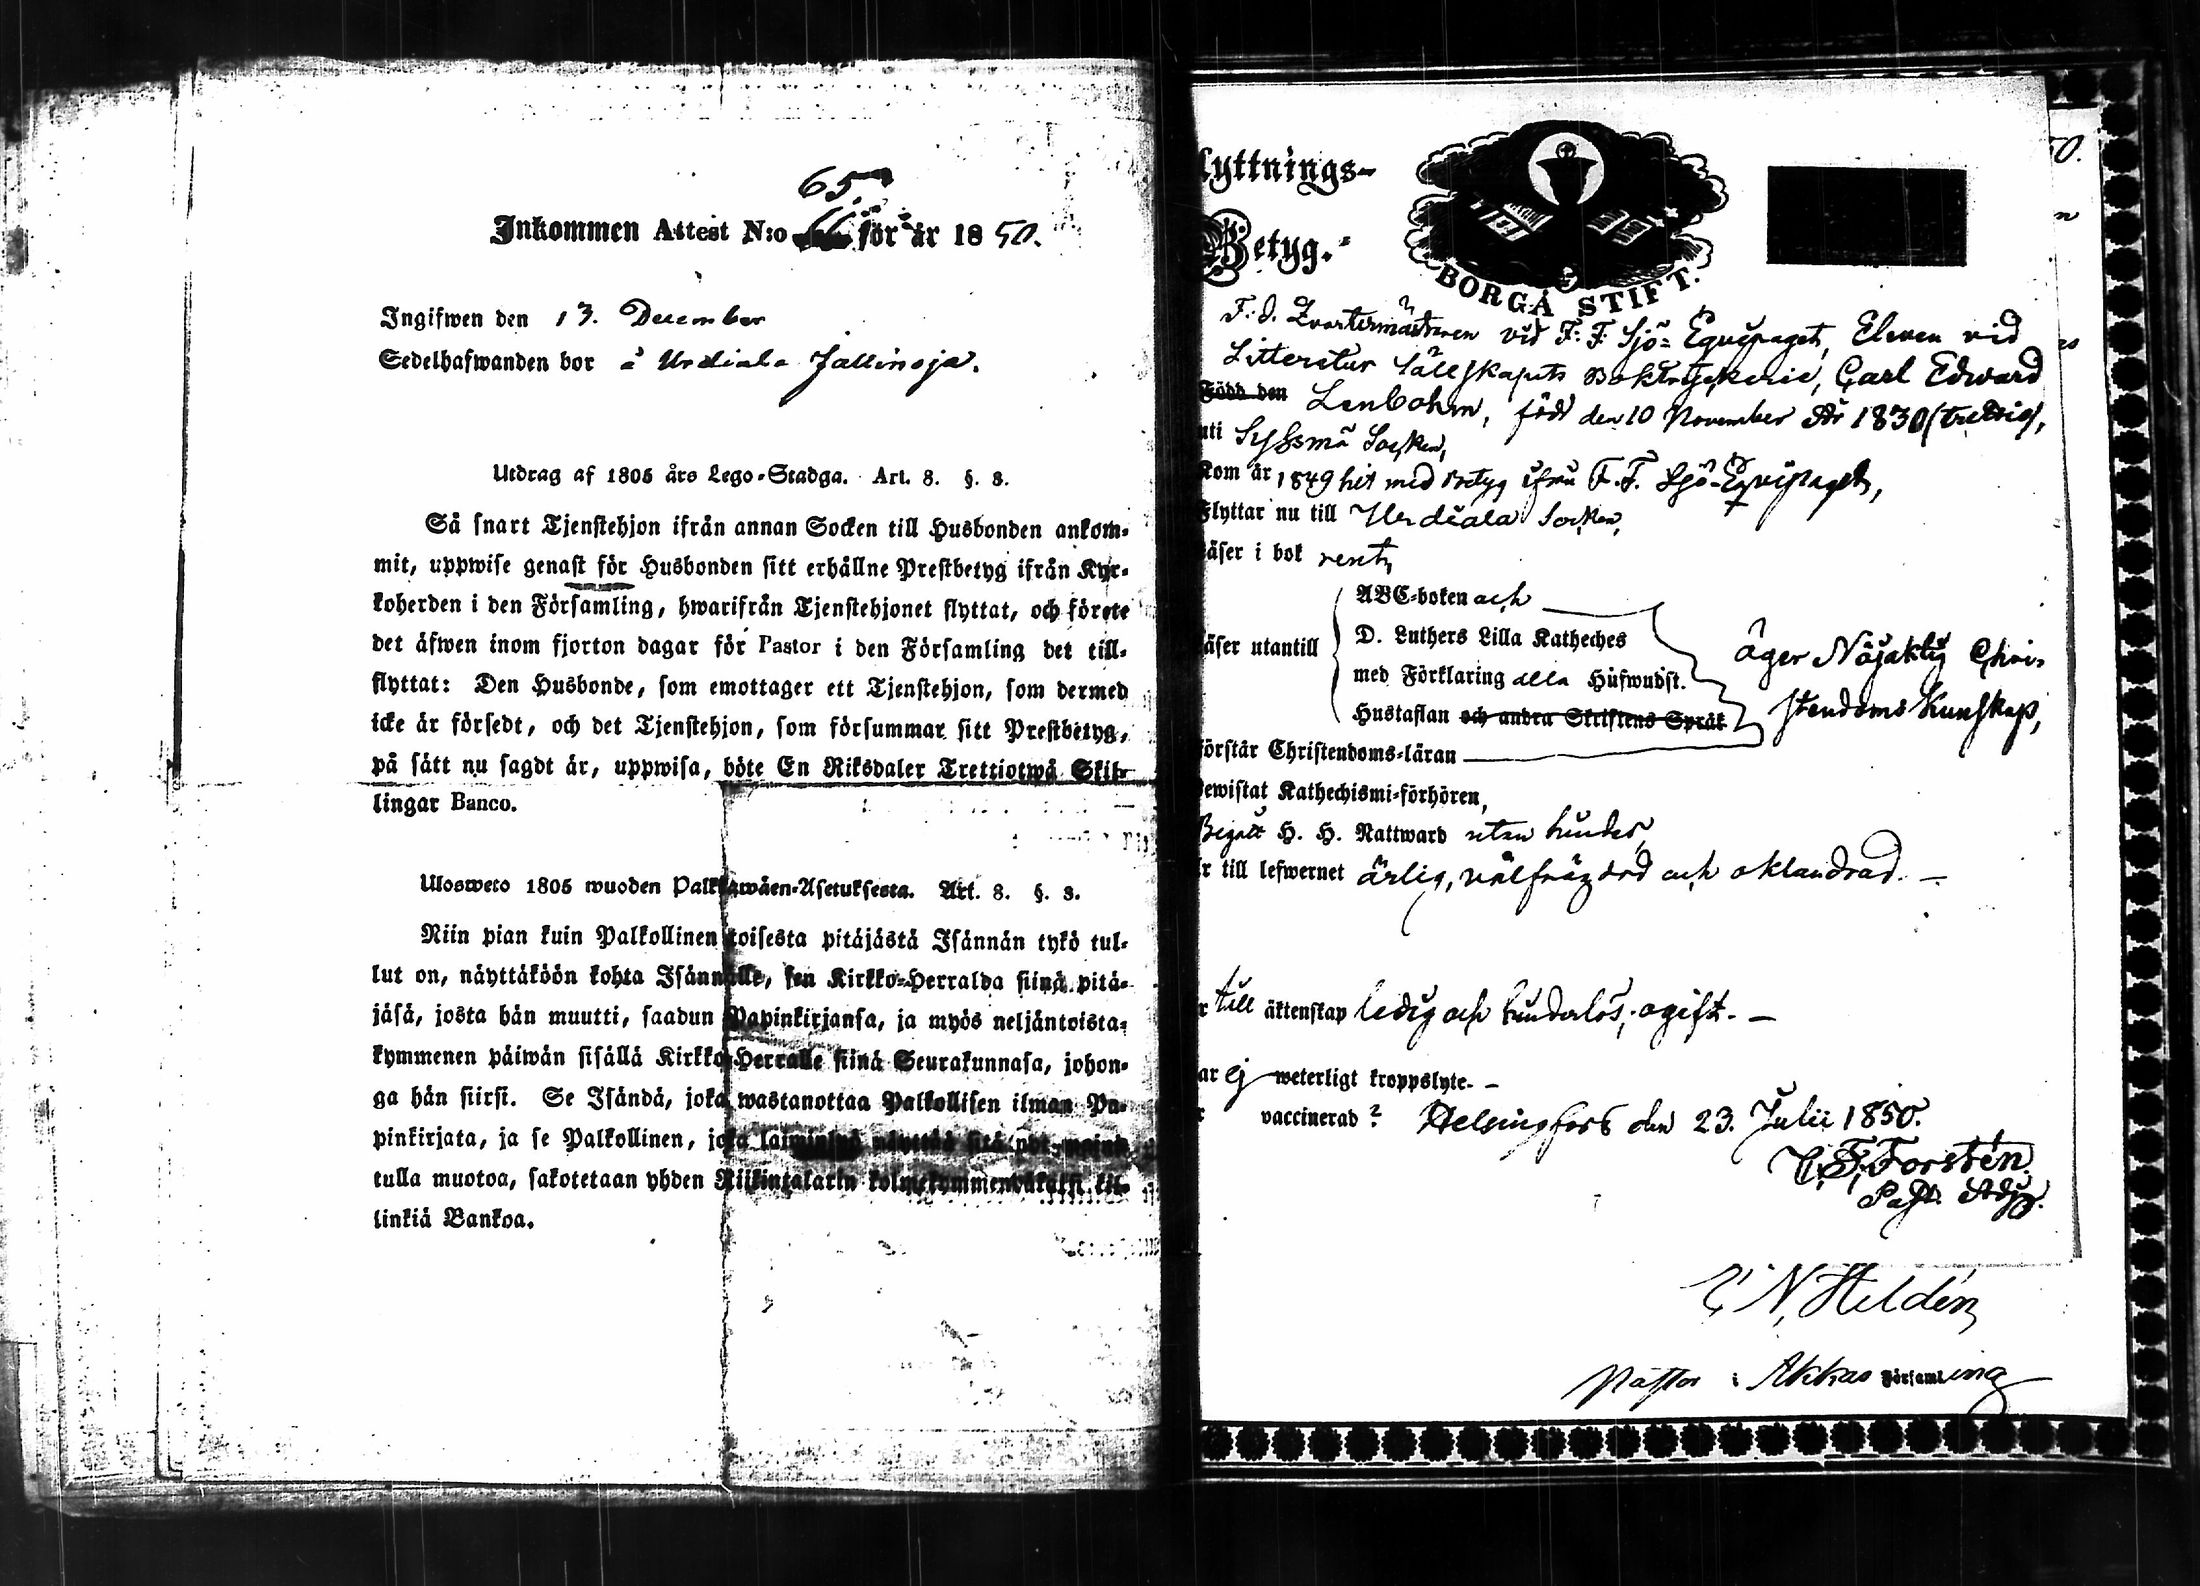 65.
Inkommen Attest N:o för år 1850.
Ingifwen den 13. December
Sedelhafwanden bor å Urdiala Jallinoja.
Utdrag af 1805 års Lego-Stadga. Art. 8. §. 8.
Så snart Tjenstehjon ifrån annan Socken till Husbonden ankom-
mit, uppwise genast för Husbonden sitt erhållne Prestbetyg ifrån Kyr-
koherden i den Församling, hwarifrån Tjenstehjonet flyttat, och förete
det äfwen inom fjorton dagar för Pastor i den Församling det till-
flyttat: Den Husbonde, som emottager ett Tjenstehjon, som dermed
icke är försedt, och det Tjenstehjon, som försummar sitt Prestbetyg,
på sätt nu sagdt är, uppwisa, böte En Riksdaler Trettiotwå Skil-
lingar Banco.
Ulosweto 1805 wuoden Palkkawäen-Asetuksesta. Art. 8. §. 8.
Niin pian kuin Palkollinen toisesta pitäjästä Isännän tykö tul-
lut on, näyttäköön kohta Isännälle, sen Kirkko-Herralda siinä pitä-
jäsä, josta hän muutti, saadun Papinkirjansa, ja myös neljäntoista-
kymmenen päiwän sisällä Kirkko-Herralle siinä Seurakunnasa, johon-
ga hän siirsi. Se Isändä, joka wastanottaa Palkollisen ilman Pa-
pinkirjata, ja se Palkollinen, joka laiminlyö näyttää sitä
tulla muotoa, sakotetaan yhden Riikintalarin kolmekymmendäkaksi kil-
linkiä Bankoa.
lyttnings-
Betyg.
BORGÅ STIFT.
F. d. Qvartermästaren vid F: F: Sjö-Equipaget, Eleven vid
Litteratur Sällskapets Boktryckerie, Carl Edvard
Född den Lenbohm, född den 10 November År 1830 (trettio),
uti Syssmä Socken,
Kom år 1849 hit med betyg ifrån F. F. Sjö-Equipaget,
Flyttar nu till Urdiala Socken,
äser i bok rent,
äser utantill
ABC-boken och
D. Luthers Lilla Katheches
med Förklaring alla Hufwudst.
Hustaflan och andra Skriftens Språk
äger Nöjaktig Chri-
stendoms Kunskap,
örstår Christendoms-läran
ewistat Kathechismi-förhören,
Begått H. H. Nattward utan hinder,
r till lefwernet ärlig, välfrägdad och oklandrad. —
r till äktenskap ledig och hinderlös, ogift. —
ar ej weterligt kroppslyte. —
vaccinerad? Helsingfors den 23. Julii 1850.
C. F. Forstén.
Past. Adj.
C N, Heldén
Pastor i Akkas Församling
50.